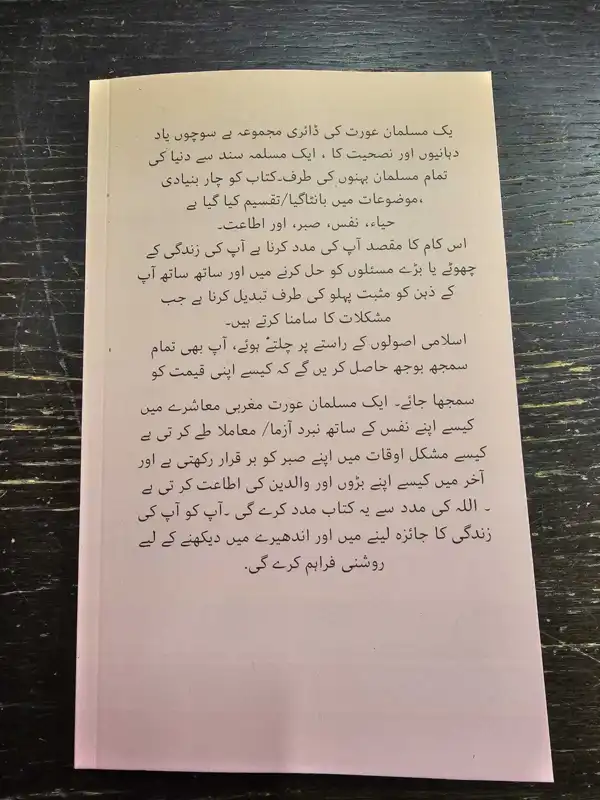 یک مسلمان عورت کی ڈائری مجموعہ ہے سوچوں یاد
دہانیوں اور نصحیت کا ، ایک مسلمہ سند سے دنیا کی
تمام مسلمان بہنوں کی طرف۔کتاب کو چار بنیادی
،موضوعات میں بانٹاگیا/تقسیم کیا گیا ہے
حیاء، نفس، صبر، اور اطاعت۔
اس کام کا مقصد آپ کی مدد کرنا ہے آپ کی زندگی کے
چھوٹے یا بڑے مسئلوں کو حل کرنے میں اور ساتھ ساتھ آپ
کے ذہن کو مثبت پہلو کی طرف تبدیل کرنا ہے جب
مشکلات کا سامنا کرتے ہیں۔
اسلامی اصولوں کے راستے پر چلتےٗ ہوئے، آپ بھی تمام
سمجھ بوجھ حاصل کر یں گے کہ کیسے اپنی قیمت کو
سمجھا جائے۔ ایک مسلمان عورت مغربی معاشرے میں
کیسے اپنے نفس کے ساتھ نبرد آزما/ معاملا طے کر تی ہے
کیسے مشکل اوقات میں اپنے صبر کو بر قرار رکھتی ہے اور
آخر میں کیسے اپنے بڑوں اور والدین کی اطاعت کر تی ہے
۔ اللہ کی مدد سے یہ کتاب مدد کرے گی ۔آپ کو آپ کی
زندگی کا جائزہ لینے میں اور اندھیرے میں دیکھنے کے لیے
روشنی فراہم کرے گی.